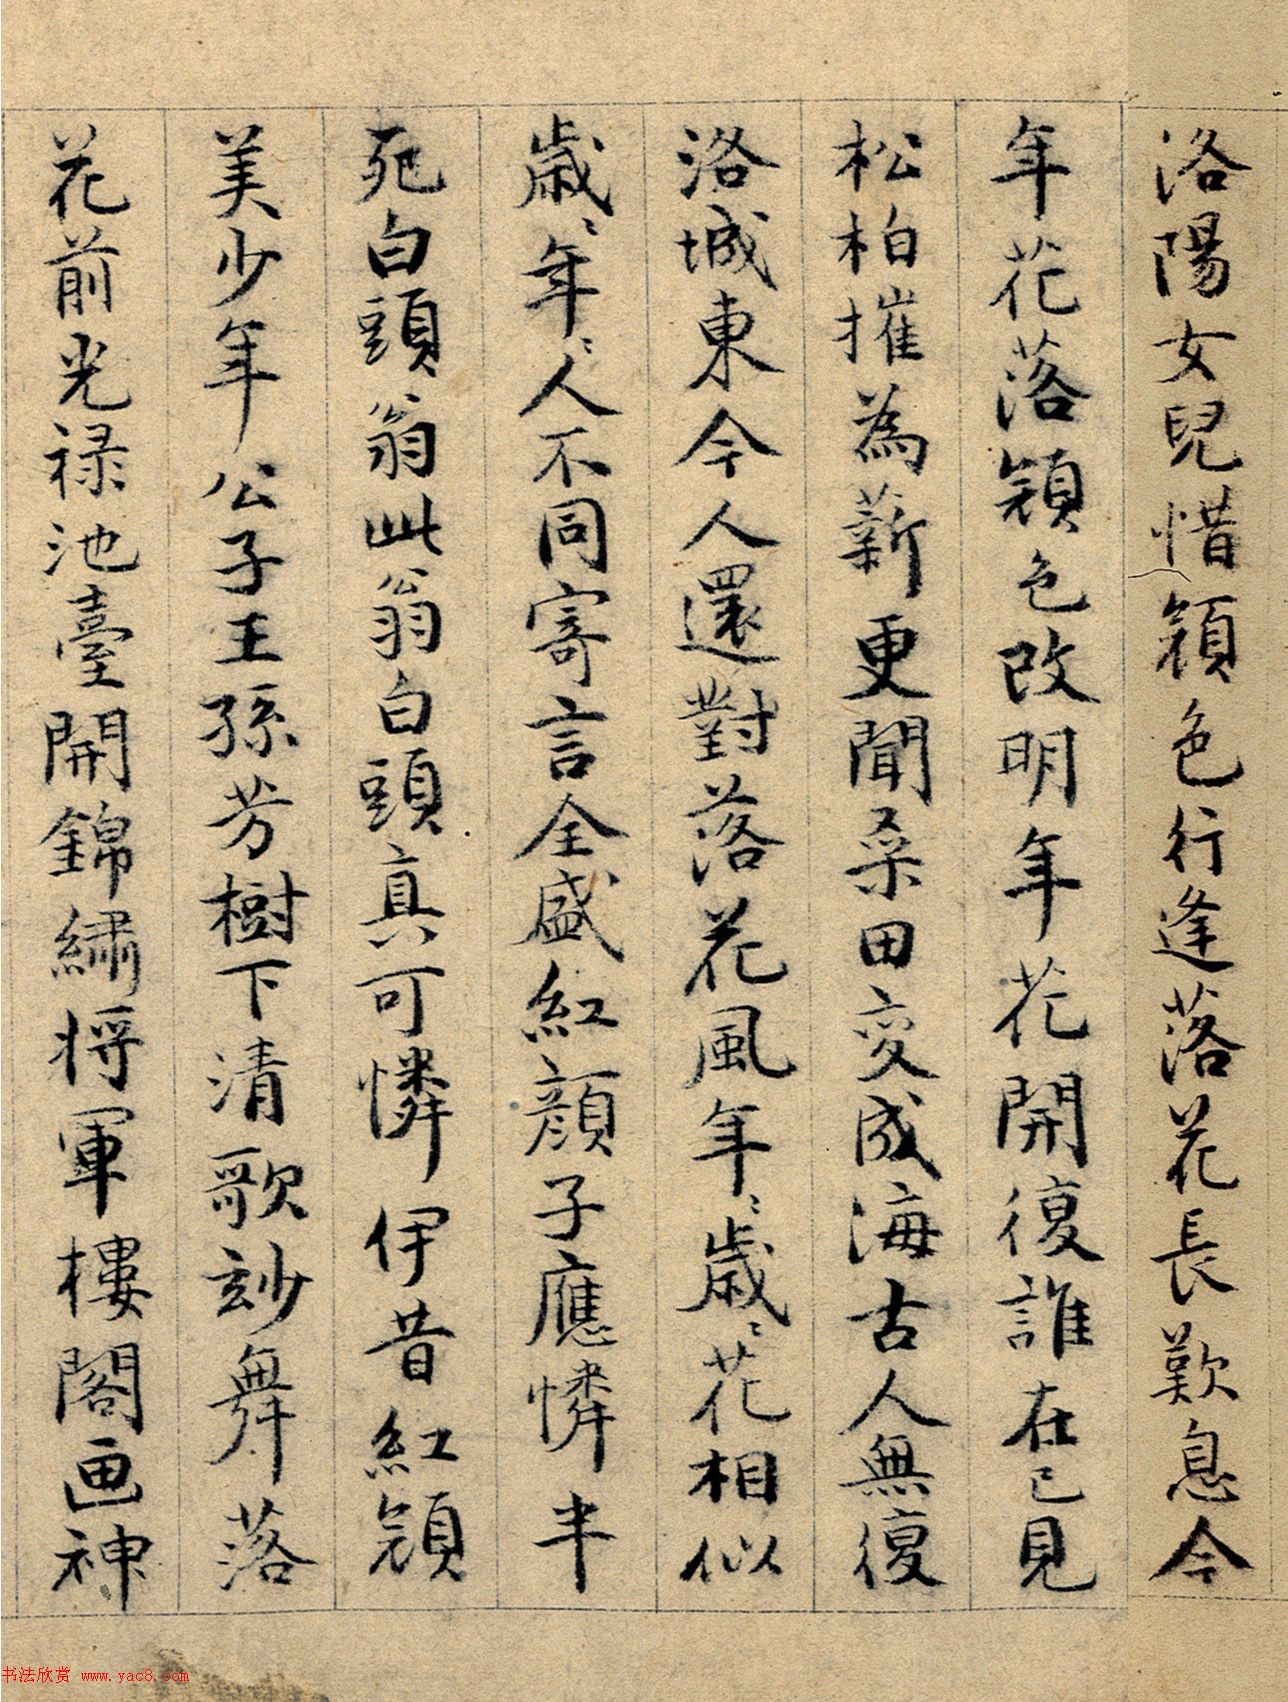 洛陽女兒惜顔色行逢落花長歎息今
年花落顔色改明年花開復誰在已見
松柏摧為薪更聞桑田変成海古人無復
洛城東今人還對落花風年〻歳〻花相似
歳〻年〻人不同寄言全盛紅顔子應憐半
死白頭翁此翁白頭真可憐伊昔紅顔
美少年公子王孫芳樹下清歌妙舞落
花前光禄池臺開錦繡将軍樓閣画神
书法欣赏 www.yac8.com